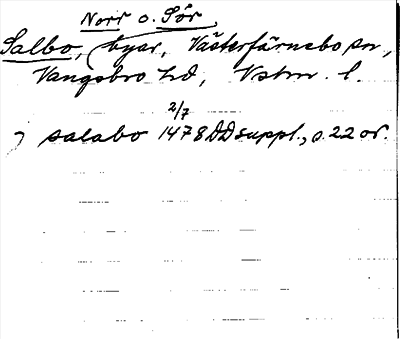 Norr o. Sör
Salbo, byar, Västerfärnebo sn,
Vangsbro hd, Vstm. l.
2/7
salabo 1478 DD suppl., s. 22 or.